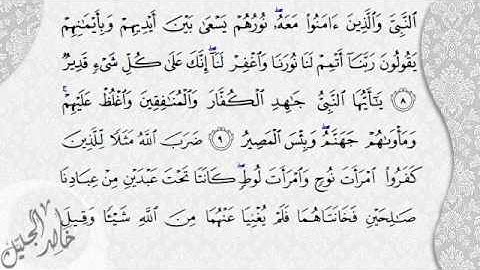 ٱلنَّبِيَّ وَٱلَّذِينَ ءَامَنُوا۟ مَعَهُۥۖ نُورُهُمْ يَسْعَىٰ بَيْنَ أَيْدِيهِمْ وَبِأَيْمَـٰنِهِمْ
يَقُولُونَ رَبَّنَآ أَتْمِمْ لَنَا نُورَنَا وَٱغْفِرْ لَنَآۖ إِنَّكَ عَلَىٰ كُلِّ شَىْءٍ قَدِيرٌ
٨ يَـٰٓأَيُّهَا ٱلنَّبِىُّ جَـٰهِدِ ٱلْكُفَّارَ وَٱلْمُنَـٰفِقِينَ وَٱغْلُظْ عَلَيْهِمْۚ
وَمَأْوَىٰهُمْ جَهَنَّمُۖ وَبِئْسَ ٱلْمَصِيرُ ٩ ضَرَبَ ٱللَّهُ مَثَلًا لِّلَّذِينَ
كَفَرُوا۟ ٱمْرَأَتَ نُوحٍ وَٱمْرَأَتَ لُوطٍۖ كَانَتَا تَحْتَ عَبْدَيْنِ مِنْ عِبَادِنَا
صَـٰلِحَيْنِ فَخَانَتَاهُمَا فَلَمْ يُغْنِيَا عَنْهُمَا مِنَ ٱللَّهِ شَيْـًٔا وَقِيلَ
خالد الجليل